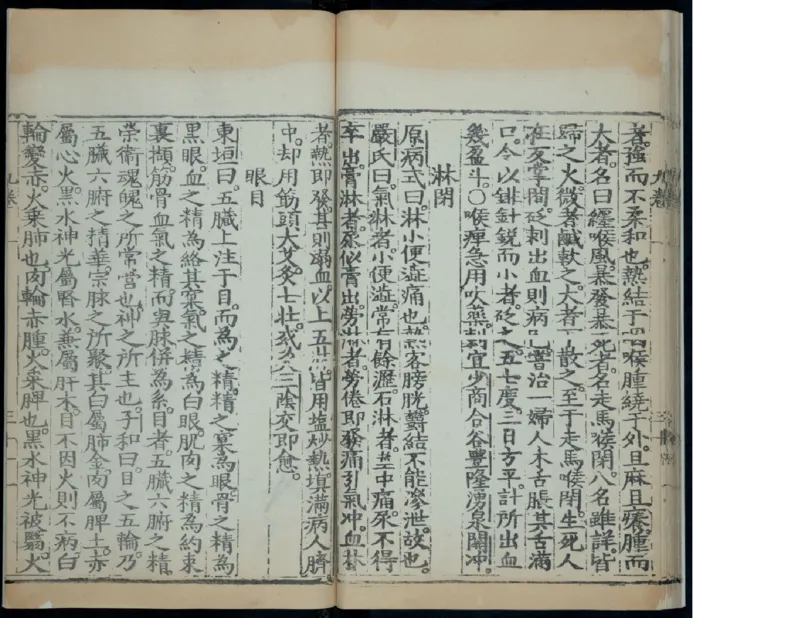 者強而不柔和也熱結于咽喉腫繞于外且麻且癢腫而
大者名曰纒喉風暴發暴死者名走馬喉閉八名雖詳皆
歸之火微者鹹軟之大者散之至于走馬喉閉生死人
在反掌間砭刺出血則病已嘗治一婦人木舌脹其舌滿
口令以錍針銳而小者砭之五七度三日方平計所出血
幾盈斗○喉痺急用吹藥刺宜少商合谷豐隆湧泉關冲
淋閉
原病式曰淋小便澁痛也熱客膀胱鬱結不能滲泄故也
嚴氏曰氣淋者小便澁常有餘瀝石淋者莖中痛尿不得
卒出膏淋者尿似膏出勞淋者勞倦即發痛引氣冲血淋
者熱即發甚則溺血以上五淋皆用塩炒熱填滿病人臍
中却用筯頭大艾灸七壯或灸三陰交即愈
眼目
東垣曰五臟上注于目而為之精精之窠為眼骨之精為
黑眼血之精為絡其窠氣之精為白眼肌肉之精為約束
裏擷筋骨血氣之精而與脉併為系目者五臟六腑之精
榮衛魂魄之所常營也神之所主也子和曰目之五輪乃
五臟六腑之精華宗脉之所聚其白屬肺金肉屬脾土赤
屬心火黑水神光屬腎水兼屬肝木目不因火則不病白
輪變赤火乘肺也肉輪赤腫火乘脾也黑水神光被翳火
九卷
三十一
九卷